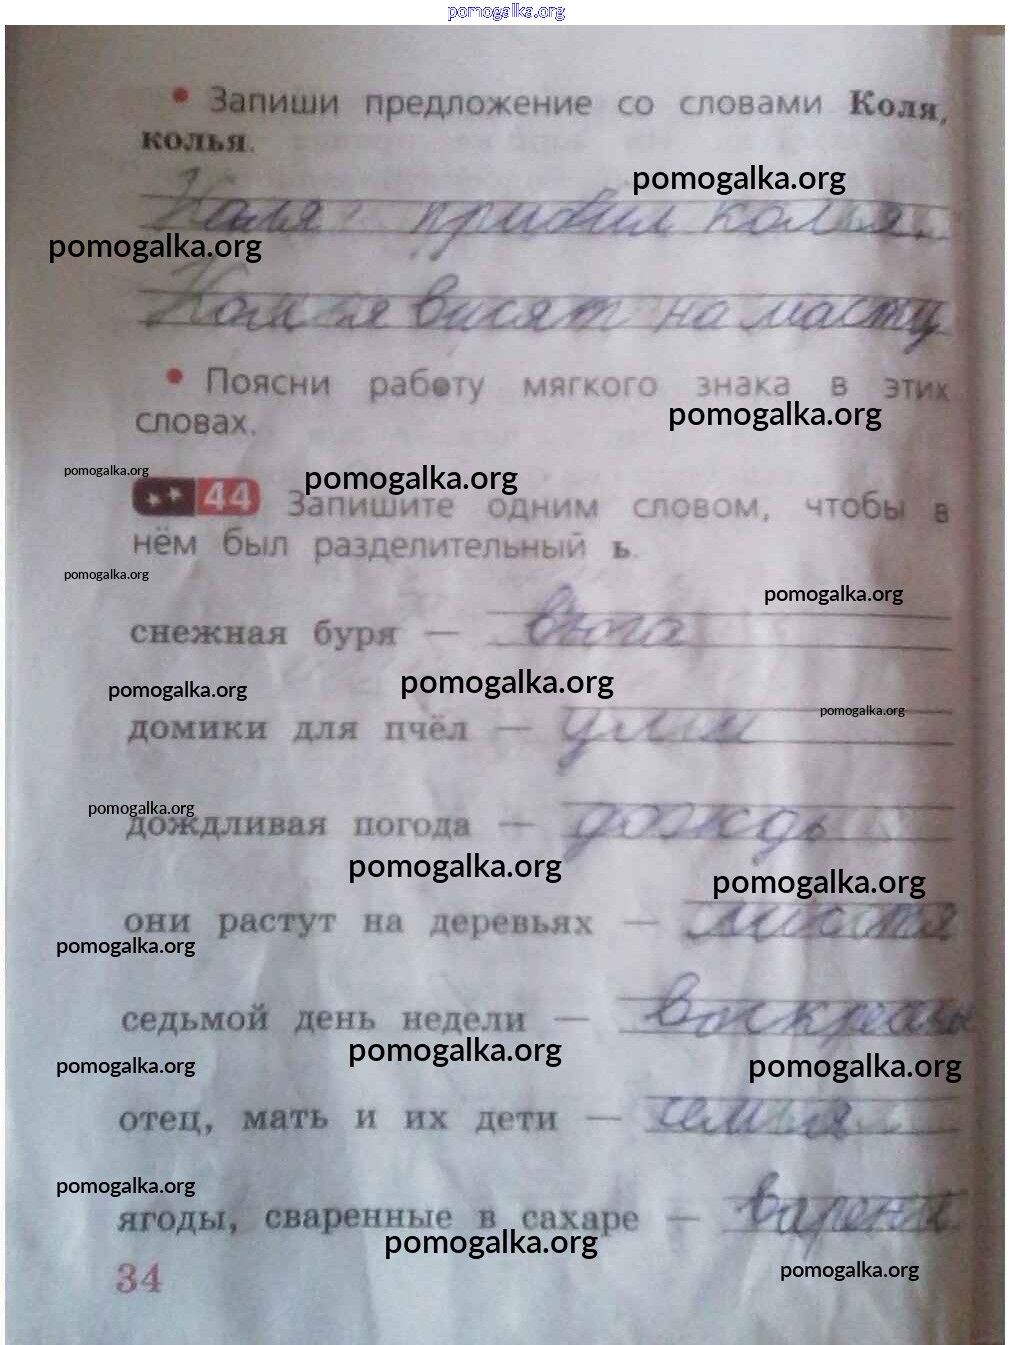 pomogalka.org
• Запиши предложение со словами Коля,
колья.
pomogalka.org
Коля прибил колья.
pomogalka.org
Колья висят на
• Поясни работу мягкого знака в этих
словах.
pomogalka.org
pomogalka.org
pomogalka.org
44 Запишите одним словом, чтобы в
нём был разделительный ь.
pomogalka.org
pomogalka.org
снежная буря — вьюга
pomogalka.org
pomogalka.org
pomogalka.org
домики для пчёл —
pomogalka.org
дождливая погода — дождь
pomogalka.org
pomogalka.org
они растут на деревьях —
pomogalka.org
седьмой день недели —
pomogalka.org
pomogalka.org
pomogalka.org
отец, мать и их дети — семья
pomogalka.org
ягоды, сваренные в сахаре —
pomogalka.org
pomogalka.org
34